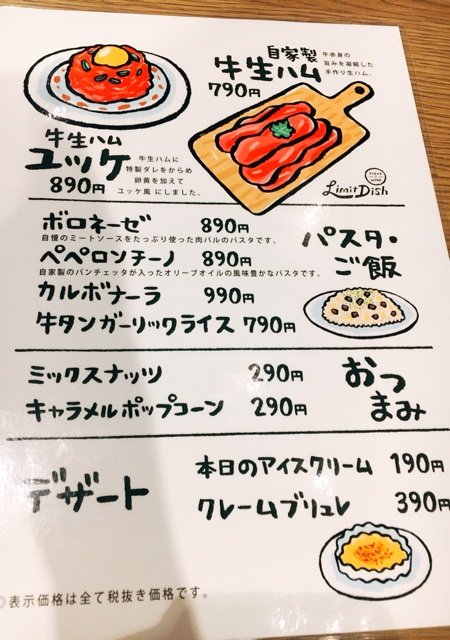 自家製
牛生ハム
790円
牛赤身の
旨みを凝縮した
手作り生ハム。
牛生ハム
ユッケ
890円
牛生ハムに
特製ダレをからめ
卵黄を加えて
ユッケ風にしました。
Limit Dish
ボロネーゼ 890円
自慢のミートソースをたっぷり使った肉バルのパスタです。
ペペロンチーノ 890円
自家製のパンチェッタが入ったオリーブオイルの風味豊かなパスタです。
カルボナーラ 990円
牛タンガーリックライス 790円
パスタ・
ご飯
ミックスナッツ 290円
キャラメルポップコーン 290円
おつ
まみ
デザート
本日のアイスクリーム 190円
クレームブリュレ 390円
◎表示価格は全て税抜き価格です。